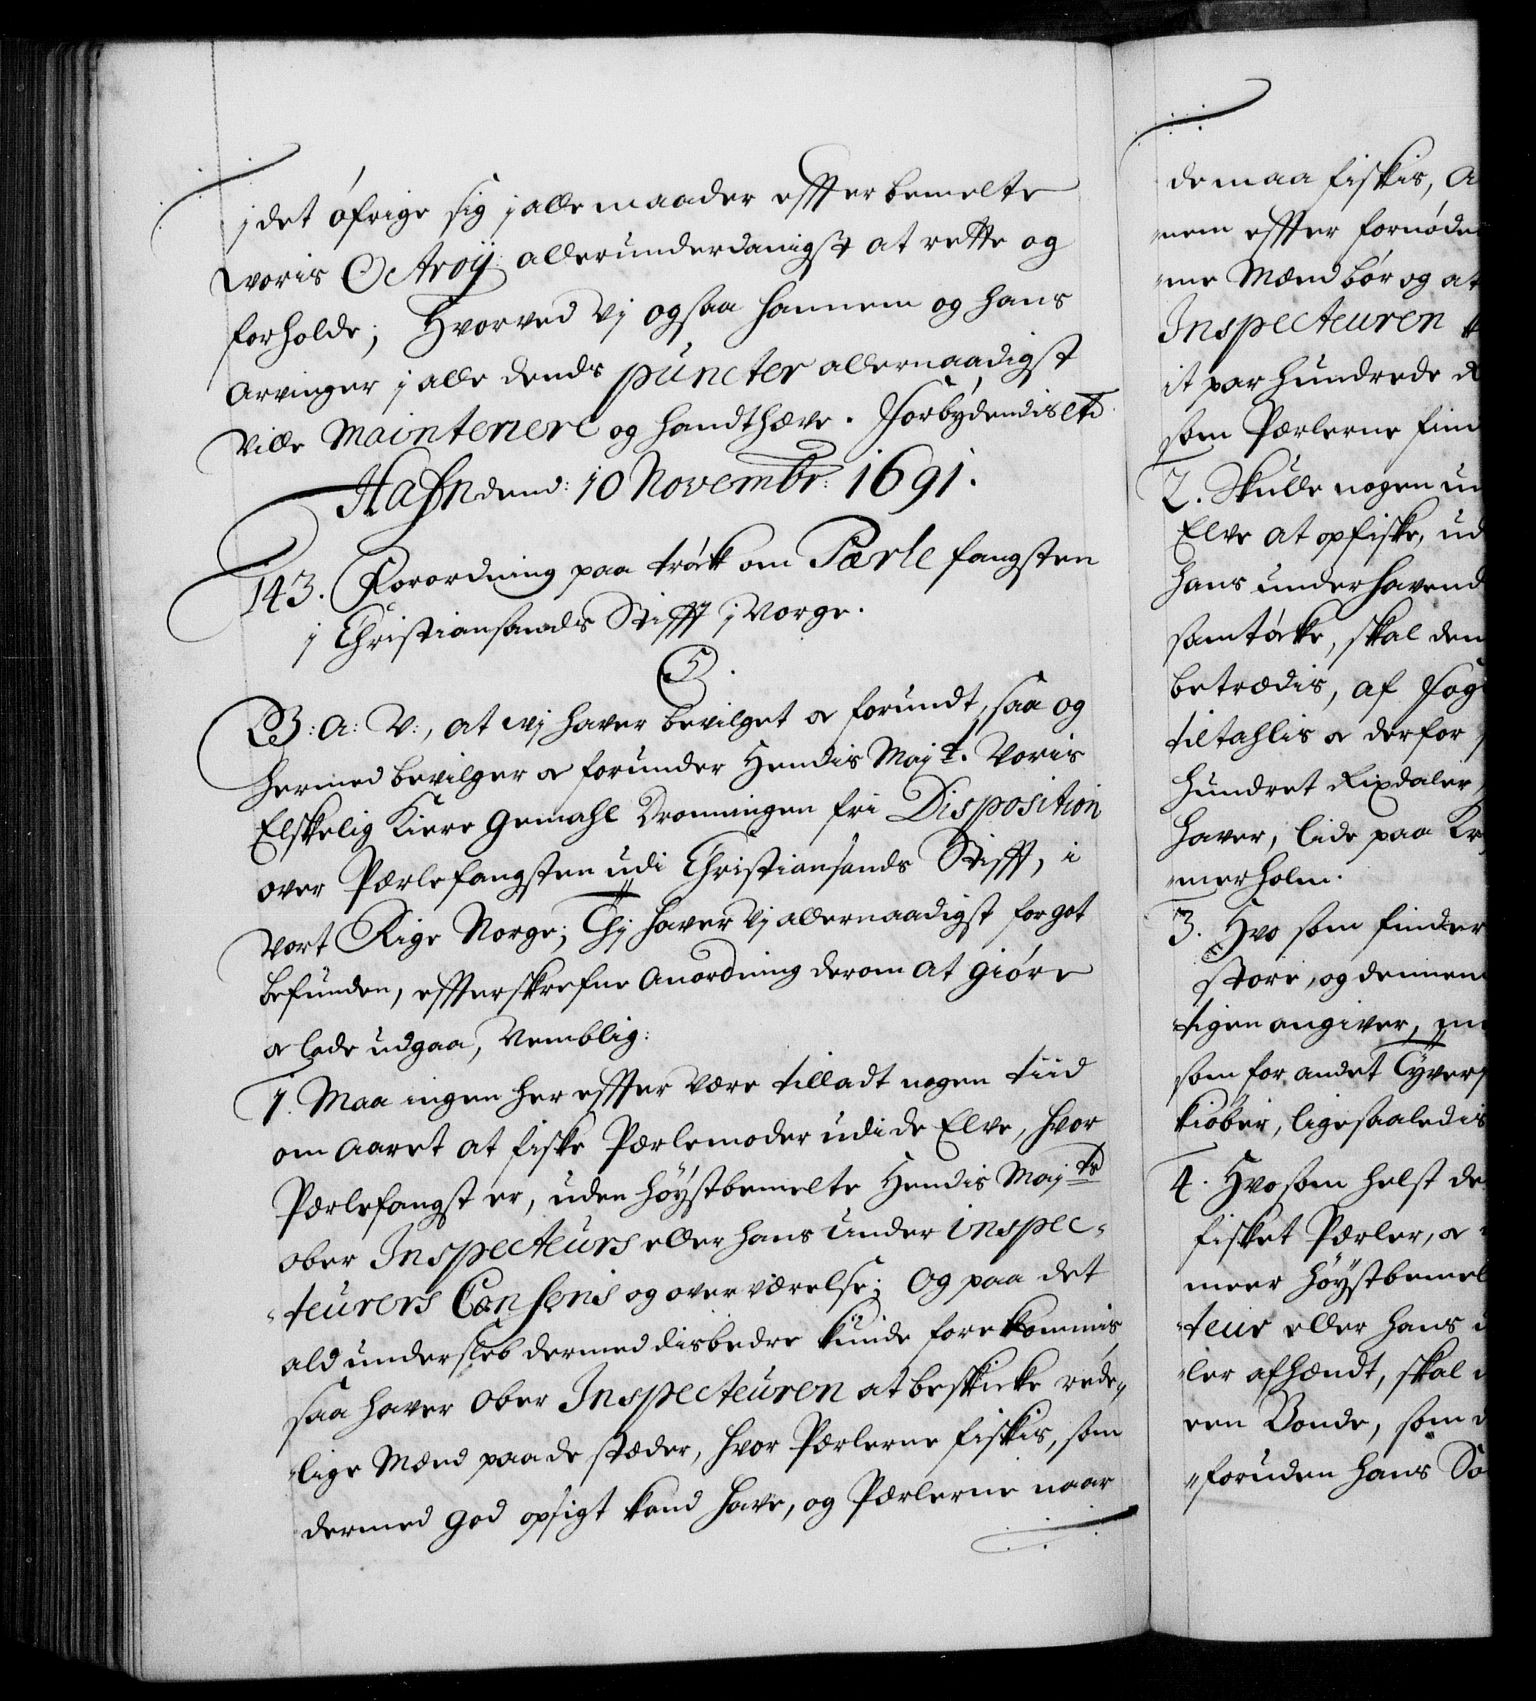 j det öfrige sig j alle maader effterbemelte
woris Octroÿ allerunderdanigst at rette og
forholde; Hvorved Vj ogsaa hannem og hans
Arvinger j alle dends puncter allernaadigst
ville Maintenere og handthæve. Forbÿdendis etc
Hafn dend: 10 Novembr: 1691.
143. Forordning paa tröck om Pærle fangsten
j Christiansands Stifft j Norge.
C5.
G: A: V:, at wj haver bevilget og forundt, saa og
hermed bevilger og forunder Hendis Majt. Voris
Elskelig Kiere Gemahl Dronningen fri Disposition
over Pærlefangsten udi Christiansands Stifft, i
Vort Rige Norge; Thj haver Vj allernaadigst for got
befunden, effterskrefne Anordning derom at giöre
og lade udgaa, Nemblig:
1. Maa ingen her effter være tilladt nogen tiid
om Aaret at fiske Pærlemoder udi de Elve, hvor
Pærlefangst er, uden höÿstbemelte Hendis Majts
ober Inspecteurs eller hans Under inspec-
-teurers Consens og overværelse; Og paa det
ald undersleb dermed disbedre kunde forekommis,
saa haver Ober Inspecteuren at beskicke rede-
-lige Mænd paa de stæder, hvor Pærlerne fiskis, som
dermed god opsigt kand have, og Pærlerne naar
de maa fiskis, A
-nem effter fornöde
-me Mænd bör og at
Inspecteuren
it par hundrede
som Pærlerne find
2. Skulle nogen un
Elve at opfiske, ud
hans underhavend
samtöcke, skal den
betrædis, af Fog
tiltahlis og derfor
hundret Rixdaler
haver, lide paa Kr
-merholm.
3. Hvo som finder
store, og dennem
-tigen angiver,
som for andet Tyver
kiöber, ligesaaledis
4. Hvo som helst de
fisket Pærler, og
meer höÿstbemel
-teur eller hans
-ler afhændt, skal
een Bonde, som
-foruden hans